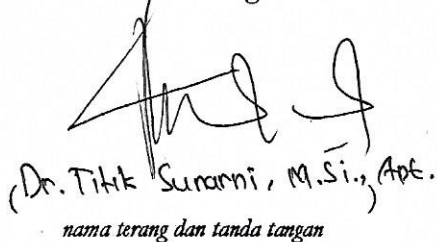 (Dr. Titik Sunarni, M.Si., Apt.
nama terang dan tanda tangan